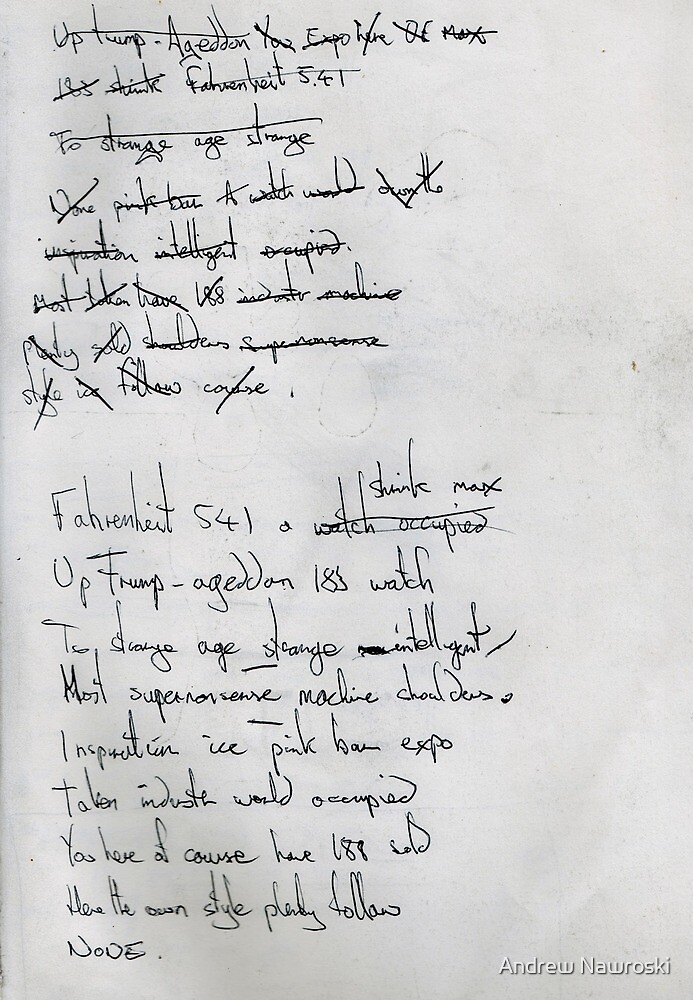 Up Trump-Ageddon You Expo here Of Max
183 shrink Fahrenheit 5.41
To strange age strange
None pink bar A watch world own the
inspiration intelligent occupied.
Most taken have 188 industr machine
plenty sold shoulders supernonsense
style ice follow course .
shrink max
Fahrenheit 541 a watch occupied
Up Trump-ageddon 183 watch
To strange age strange intelligent
Most supernonsense machine shoulders.
Inspiration ice pink bar expo
taken industr world occupied
You here of course have 188 sold
Here the own style plenty follow
NONE.
Andrew Nawroski